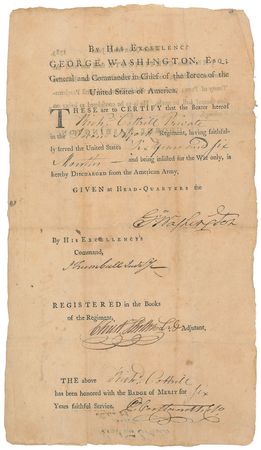 By His Excellency
GEORGE WASHINGTON, Esq;
General and Commander in Chief of the Forces of the
United States of America.
THESE are to CERTIFY that the Bearer hereof
Private
in the Regiment, having faithful-
ly served the United States Six Years and Six
Months — and being inlisted for the War only, is
hereby DISCHARGED from the American Army.
GIVEN at HEAD-QUARTERS the
G:Washington
By HIS EXCELLENCY's
Command,
J Trumbull Jun
REGISTERED in the Books
of the Regiment,
Adjutant,
THE above
has been honored with the BADGE of MERIT for Six
Years faithful Service.